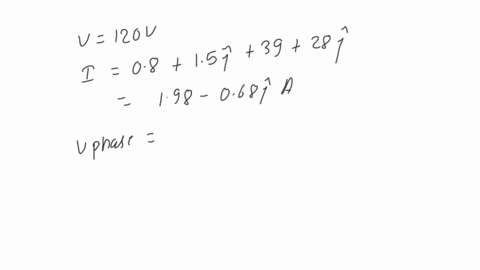 V = 120V
I = 0.8 + 1.5ĵ + 39 + 28ĵ
= 1.98 - 0.68ĵ A
V phase =